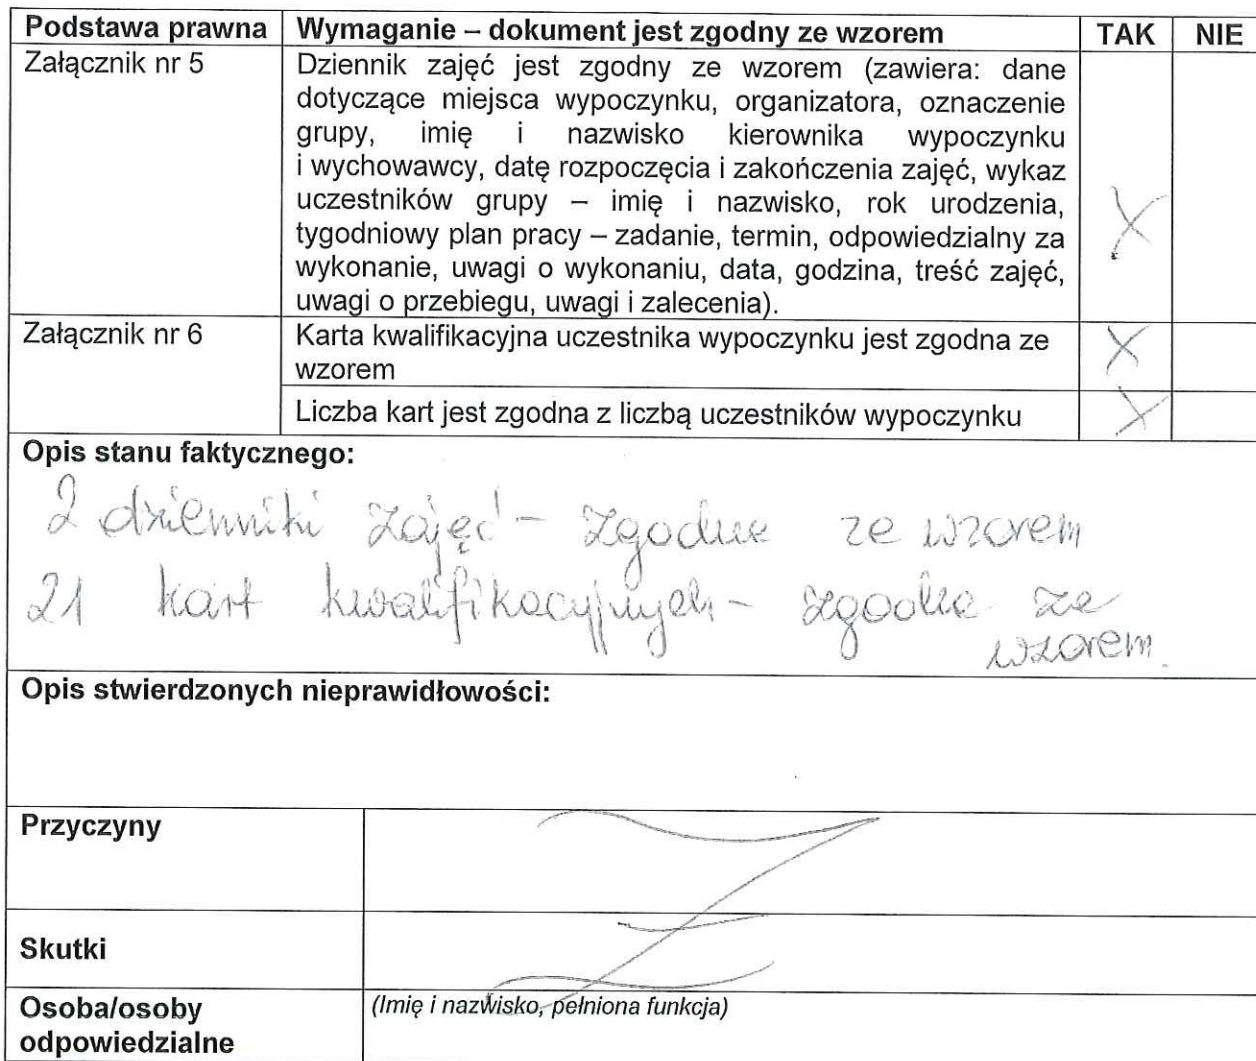 Podstawa prawna Wymaganie – dokument jest zgodny ze wzorem TAK NIE
Załącznik nr 5 Dziennik zajęć jest zgodny ze wzorem (zawiera: dane
dotyczące miejsca wypoczynku, organizatora, oznaczenie
grupy, imię i nazwisko kierownika wypoczynku
i wychowawcy, datę rozpoczęcia i zakończenia zajęć, wykaz
uczestników grupy – imię i nazwisko, rok urodzenia,
tygodniowy plan pracy – zadanie, termin, odpowiedzialny za
wykonanie, uwagi o wykonaniu, data, godzina, treść zajęć,
uwagi o przebiegu, uwagi i zalecenia).
X
Załącznik nr 6 Karta kwalifikacyjna uczestnika wypoczynku jest zgodna ze
wzorem
X
Liczba kart jest zgodna z liczbą uczestników wypoczynku X
Opis stanu faktycznego:
2 dzienniki zajęć – zgodne ze wzorem
21 kart kwalifikacyjnych – zgodne ze
wzorem.
Opis stwierdzonych nieprawidłowości:
Przyczyny
Skutki
Osoba/osoby
odpowiedzialne
(Imię i nazwisko, pełniona funkcja)